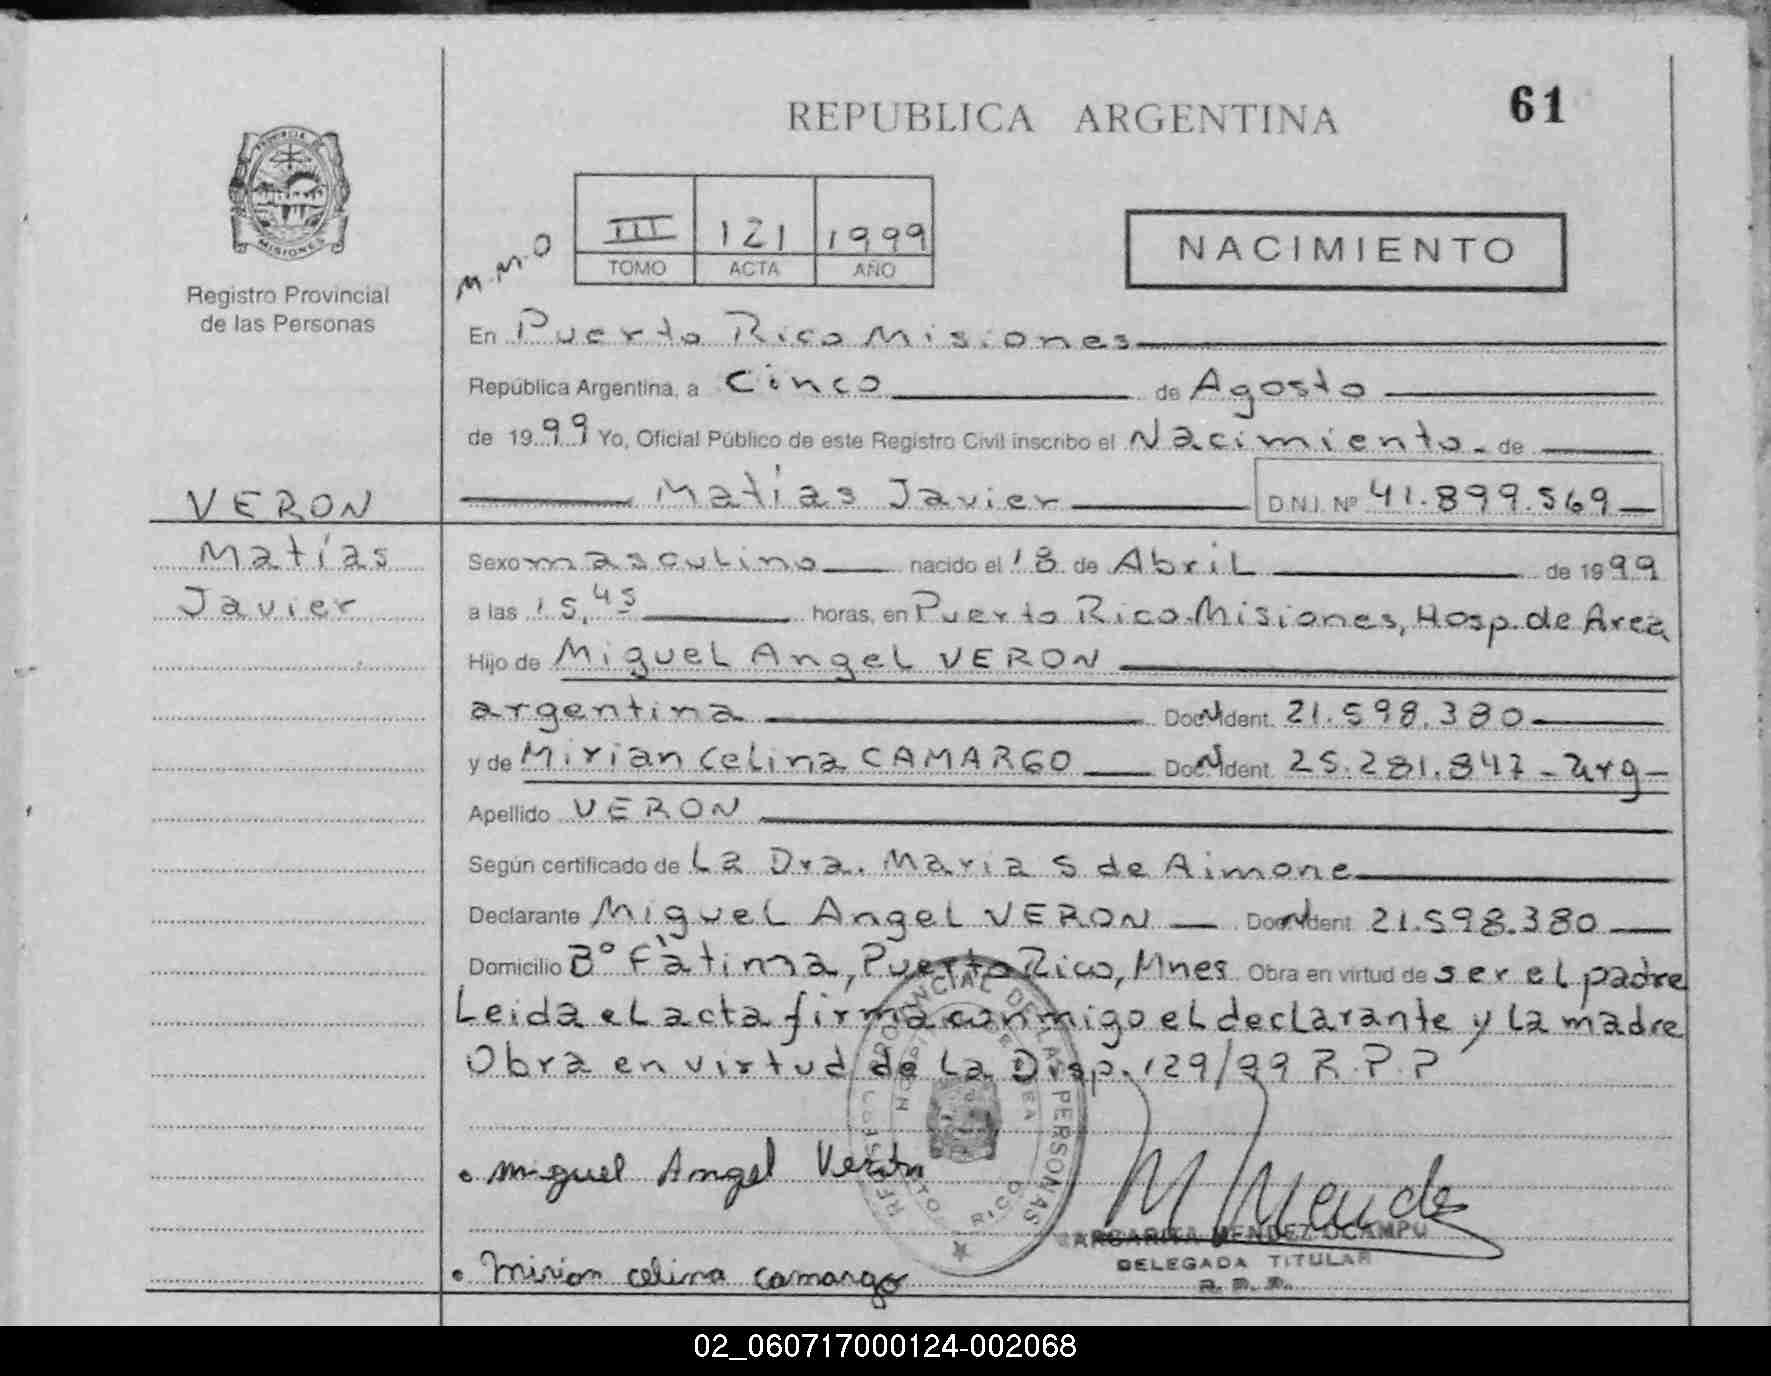 REPUBLICA ARGENTINA
61
PROVINCIA
MISIONES
Registro Provincial
de las Personas
M.M.O
III 121 1999
TOMO ACTA AÑO
NACIMIENTO
En Puerto Rico Misiones
República Argentina, a Cinco de Agosto
de 1999 Yo, Oficial Público de este Registro Civil inscribo el Nacimiento de
VERON
Matías Javier D.N.I. Nº 41.899.569
Matías
Sexo masculino nacido el 18 de Abril de 1999
Javier
a las 15,45 horas, en Puerto Rico Misiones, Hosp. de Area
Hijo de Miguel Angel VERON
argentina Doc. Ident. 21.598.380
y de Mirian Celina CAMARGO Doc. Ident. 25.281.847 - arg -
Apellido VERON
Según certificado de La Dra. Maria S de Aimone
Declarante Miguel Angel VERON Doc. Ident. 21.598.380
Domicilio Bº Fàtima, Puerto Rico, Mnes Obra en virtud de ser el padre
Leida el acta firma conmigo el declarante y la madre
Obra en virtud de La Disp. 129/99 R.P.P
REGISTRO PROVINCIAL DE LAS PERSONAS
RICO
Miguel Angel Verón
M Mendez
MARGARITA MENDEZ OCAMPO
DELEGADA TITULAR
R. P. P.
mirian celina camargo
02_060717000124-002068